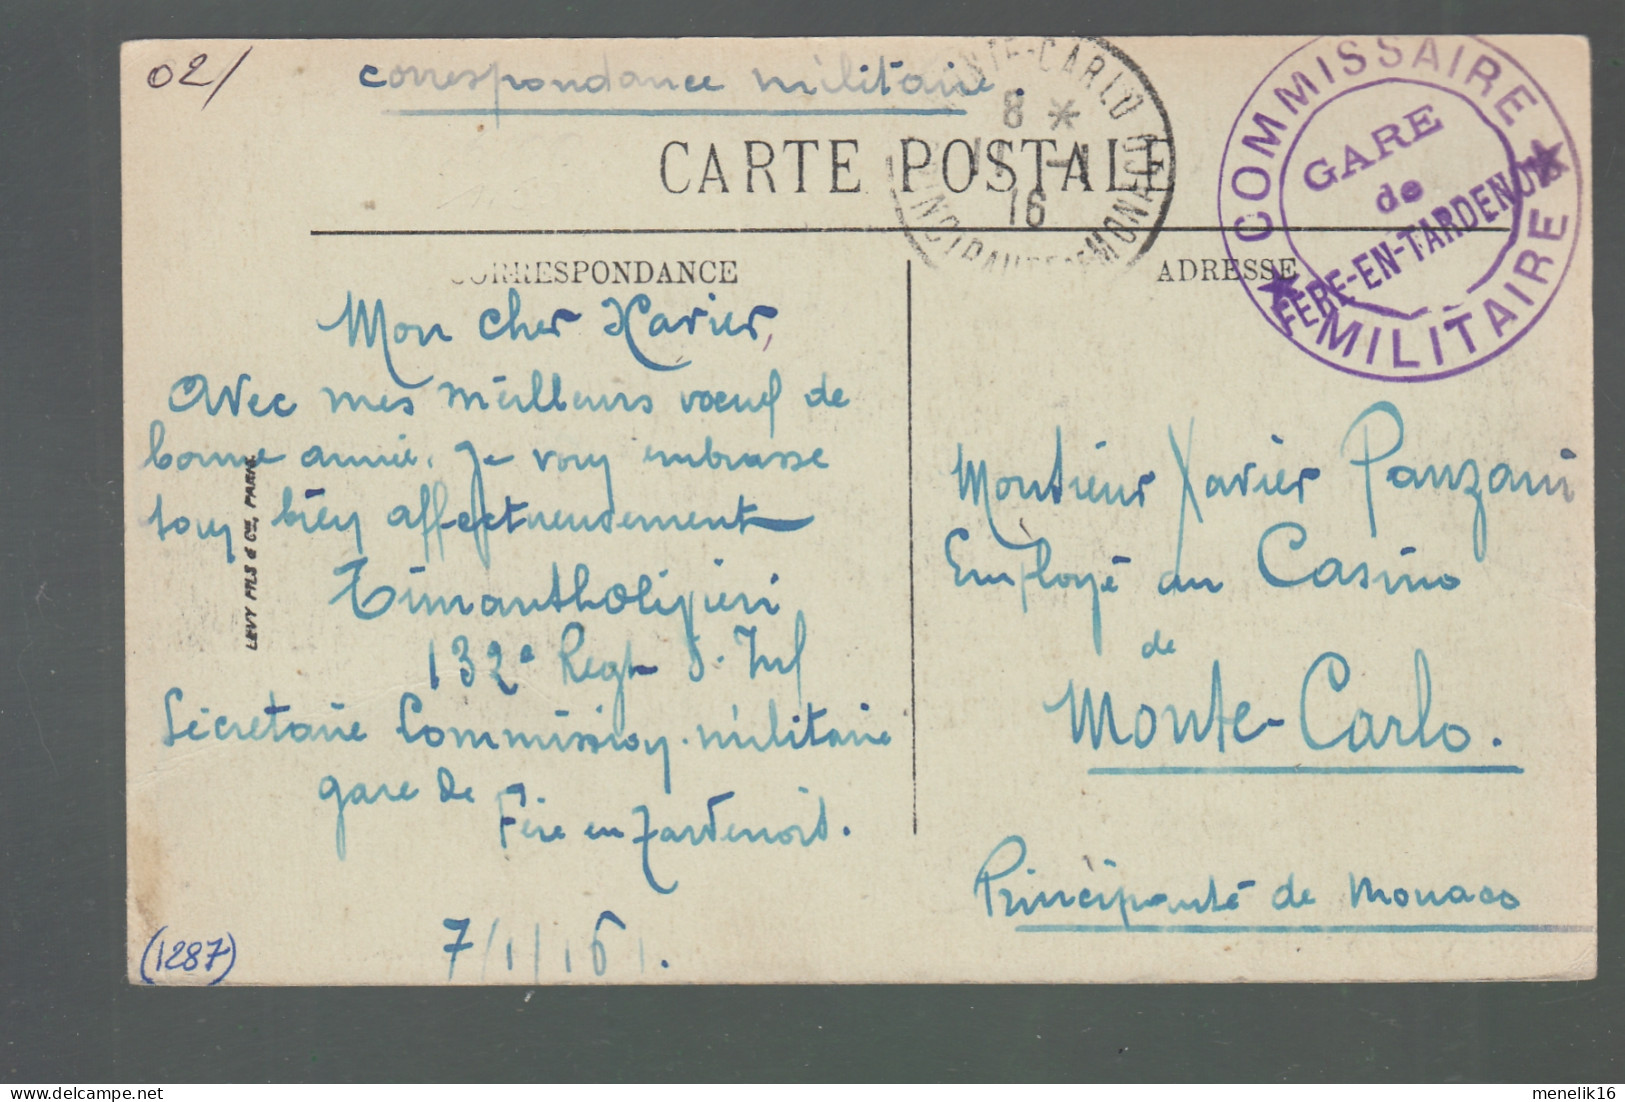 02/
correspondance militaire.
MONTE-CARLO
8 *
11 -1
16
COMMISSAIRE MILITAIRE
GARE
de
FÈRE-EN-TARDENOIS
CARTE POSTALE
CORRESPONDANCE
ADRESSE
Mon cher Xavier,
Avec mes meilleurs vœux de
bonne année. Je vous embrasse
tous bien affectueusement
132e Regt d'Inf
Secrétaire Commission militaire
gare de
Fère en Tardenois.
7/1/16.
LEVY FILS & Cie, PARIS
Monsieur Xavier Panzani
Employé au Casino
de
Monte-Carlo.
Principauté de Monaco
(1287)
delcampe.net
menelik16